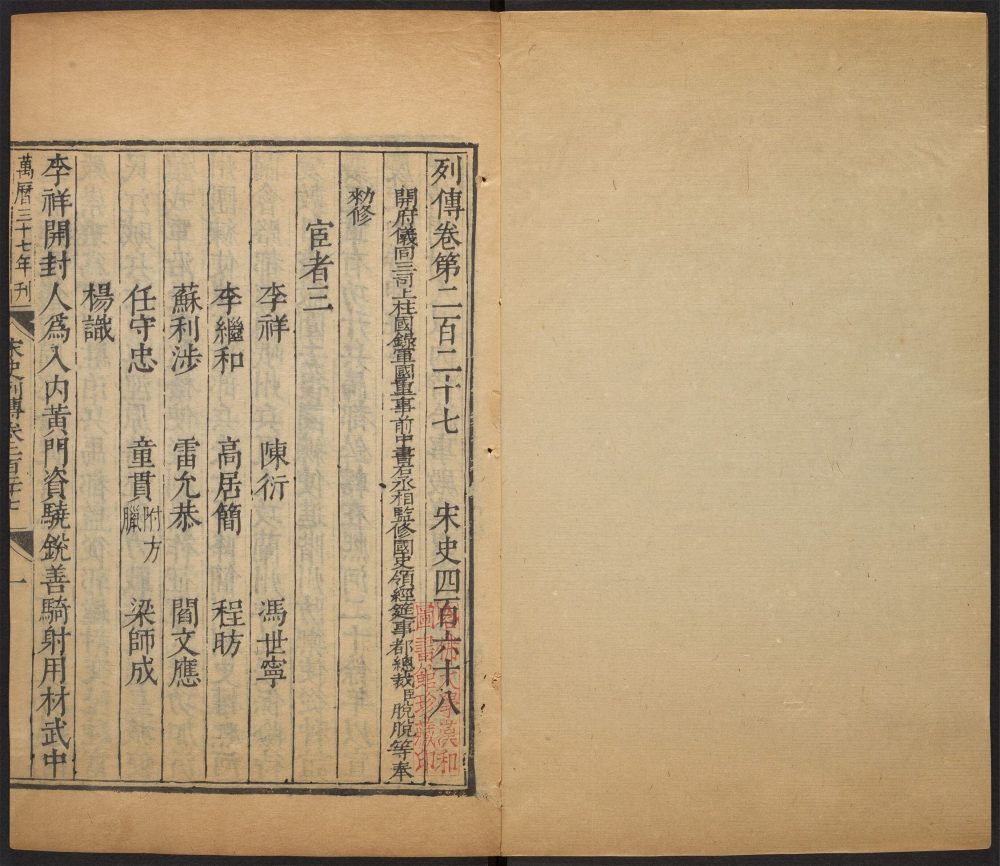 列傳卷第二百二十七 宋史四百六十八
開府儀同三司上柱國錄軍國重事前中書右丞相監修國史領經筵事都總裁臣脫脫等奉
勑修
宦者三
李祥 陳衍 馮世寧
李繼和 高居簡 程昉
蘇利涉 雷允恭 閻文應
任守忠 童貫附方臘 梁師成
楊戩
李祥開封人爲入内黃門資驍銳善騎射用材武中
萬曆三十七年刊
宋史列傳卷二百二十七
一
漢和
圖書館珍藏印